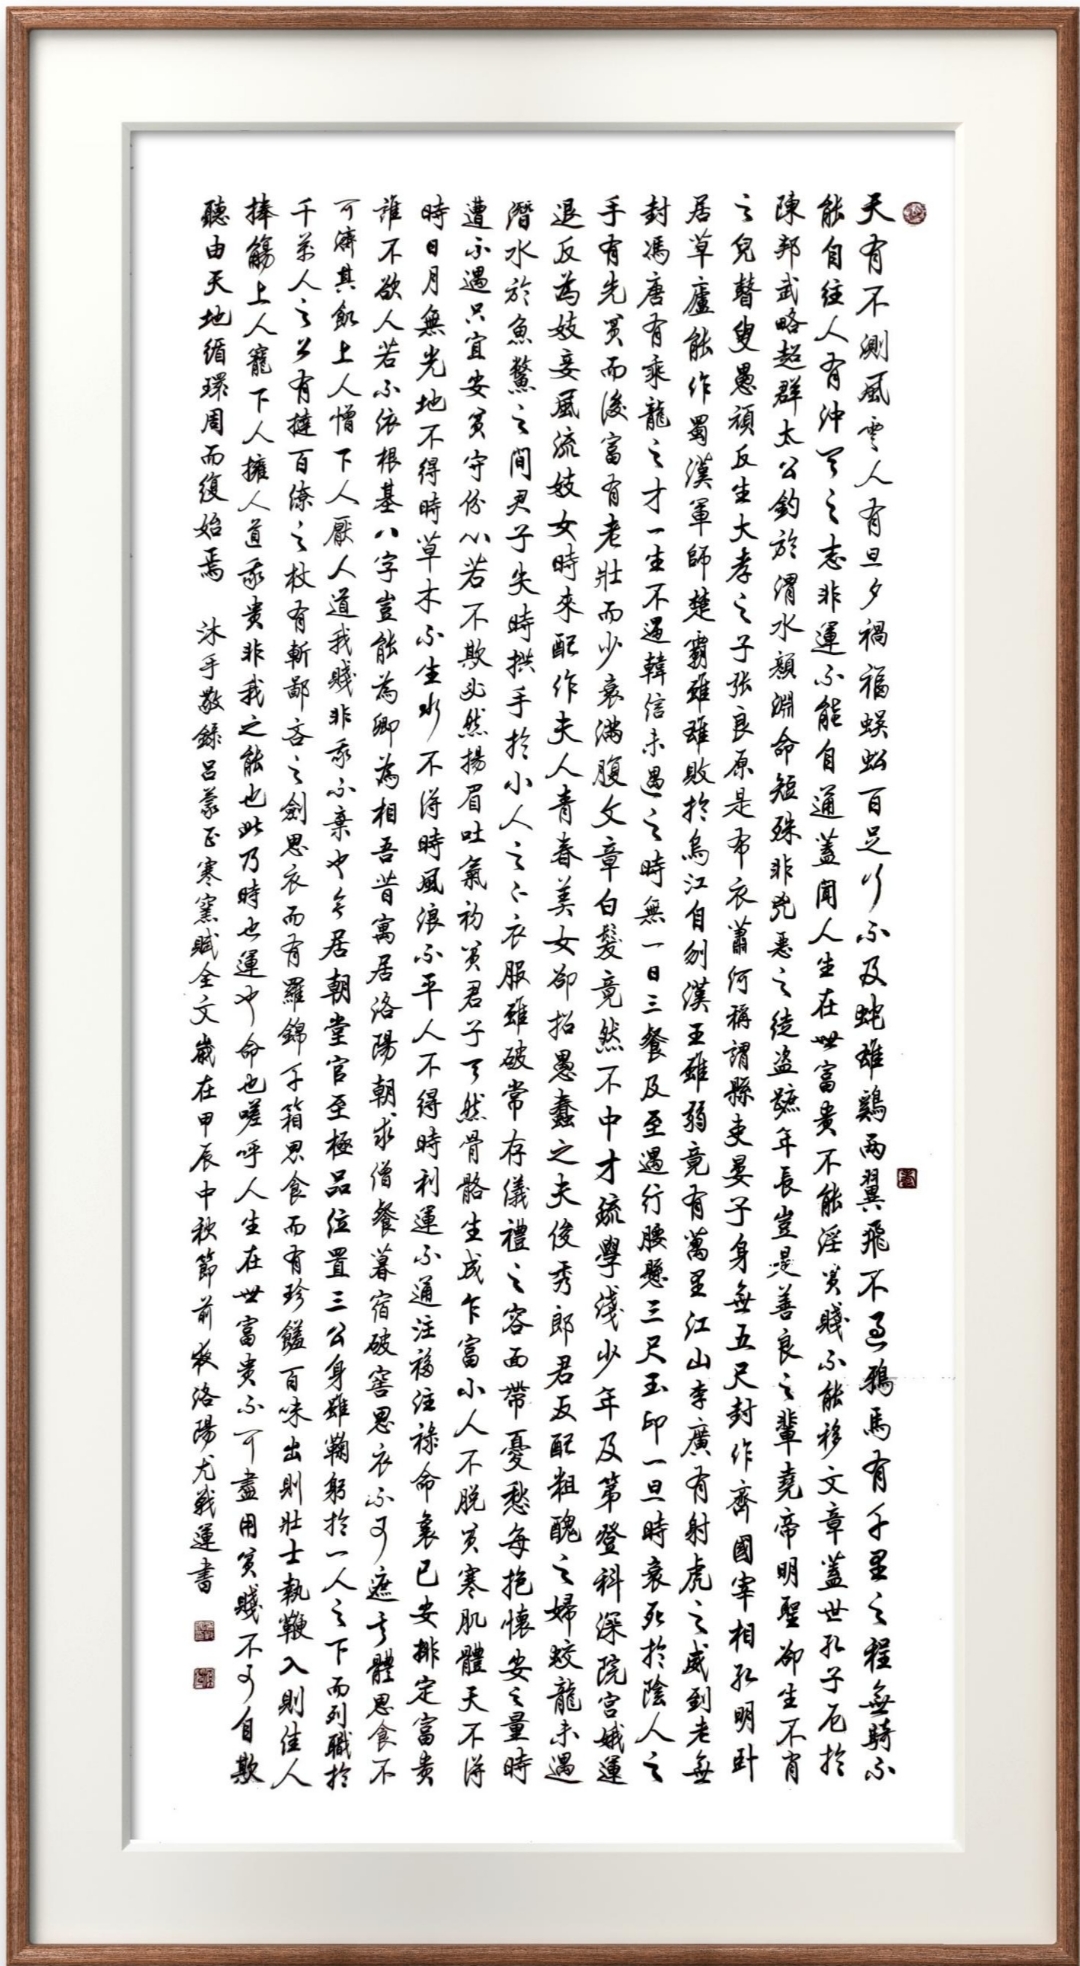 天有不測風雲人有旦夕禍福蜈蚣百足行不及蛇雄鷄兩翼飛不過鴉馬有千里之程無騎不
能自往人有沖天之志非運不能自通蓋聞人生在世富貴不能淫貧賤不能移文章蓋世孔子厄於
陳邦武略超群太公釣於渭水顏淵命短殊非兇惡之徒盜蹠年長豈是善良之輩堯帝明聖卻生不肖
之兒瞽叟愚頑反生大孝之子張良原是布衣蕭何稱謂縣吏晏子身無五尺封作齊國宰相孔明卧
居草廬能作蜀漢軍師楚霸雖雄敗於烏江自刎漢王雖弱竟有萬里江山李廣有射虎之威到老無
封馮唐有乘龍之才一生不遇韓信未遇之時無一日三餐及至遇行腰懸三尺玉印一旦時衰死於陰人之
手有先貧而後富有老壯而少衰滿腹文章白髮竟然不中才疏學淺少年及第登科深院宮娥運
退反為妓妾風流妓女時來配作夫人青春美女卻招愚蠢之夫俊秀郎君反配粗醜之婦蛟龍未遇
潛水於魚鱉之間君子失時拱手於小人之下衣服雖破常存儀禮之容面帶憂愁每抱懷安之量時
遭不遇只宜安貧守份心若不欺必然揚眉吐氣初貧君子天然骨骼生成乍富小人不脫貧寒肌體天不得
時日月無光地不得時草木不生水不得時風浪不平人不得時利運不通注福注祿命裏已安排定富貴
誰不欲人若不依根基八字豈能為卿為相吾昔寓居洛陽朝求僧餐暮宿破窖思衣不可遮其體思食不
可濟其飢上人憎下人厭人道我賤非我不棄也今居朝堂官至極品位置三公身雖鞠躬於一人之下而列職於
千萬人之上有撻百僚之杖有斬鄙吝之劍思衣而有羅錦千箱思食而有珍饈百味出則壯士執鞭入則佳人
捧觴上人寵下人擁人道我貴非我之能也此乃時也運也命也嗟呼人生在世富貴不可盡用貧賤不可自欺
聽由天地循環周而復始焉 沐手敬錄呂蒙正寒窯賦全文歲在甲辰中秋節前夜洛陽尤戰運書